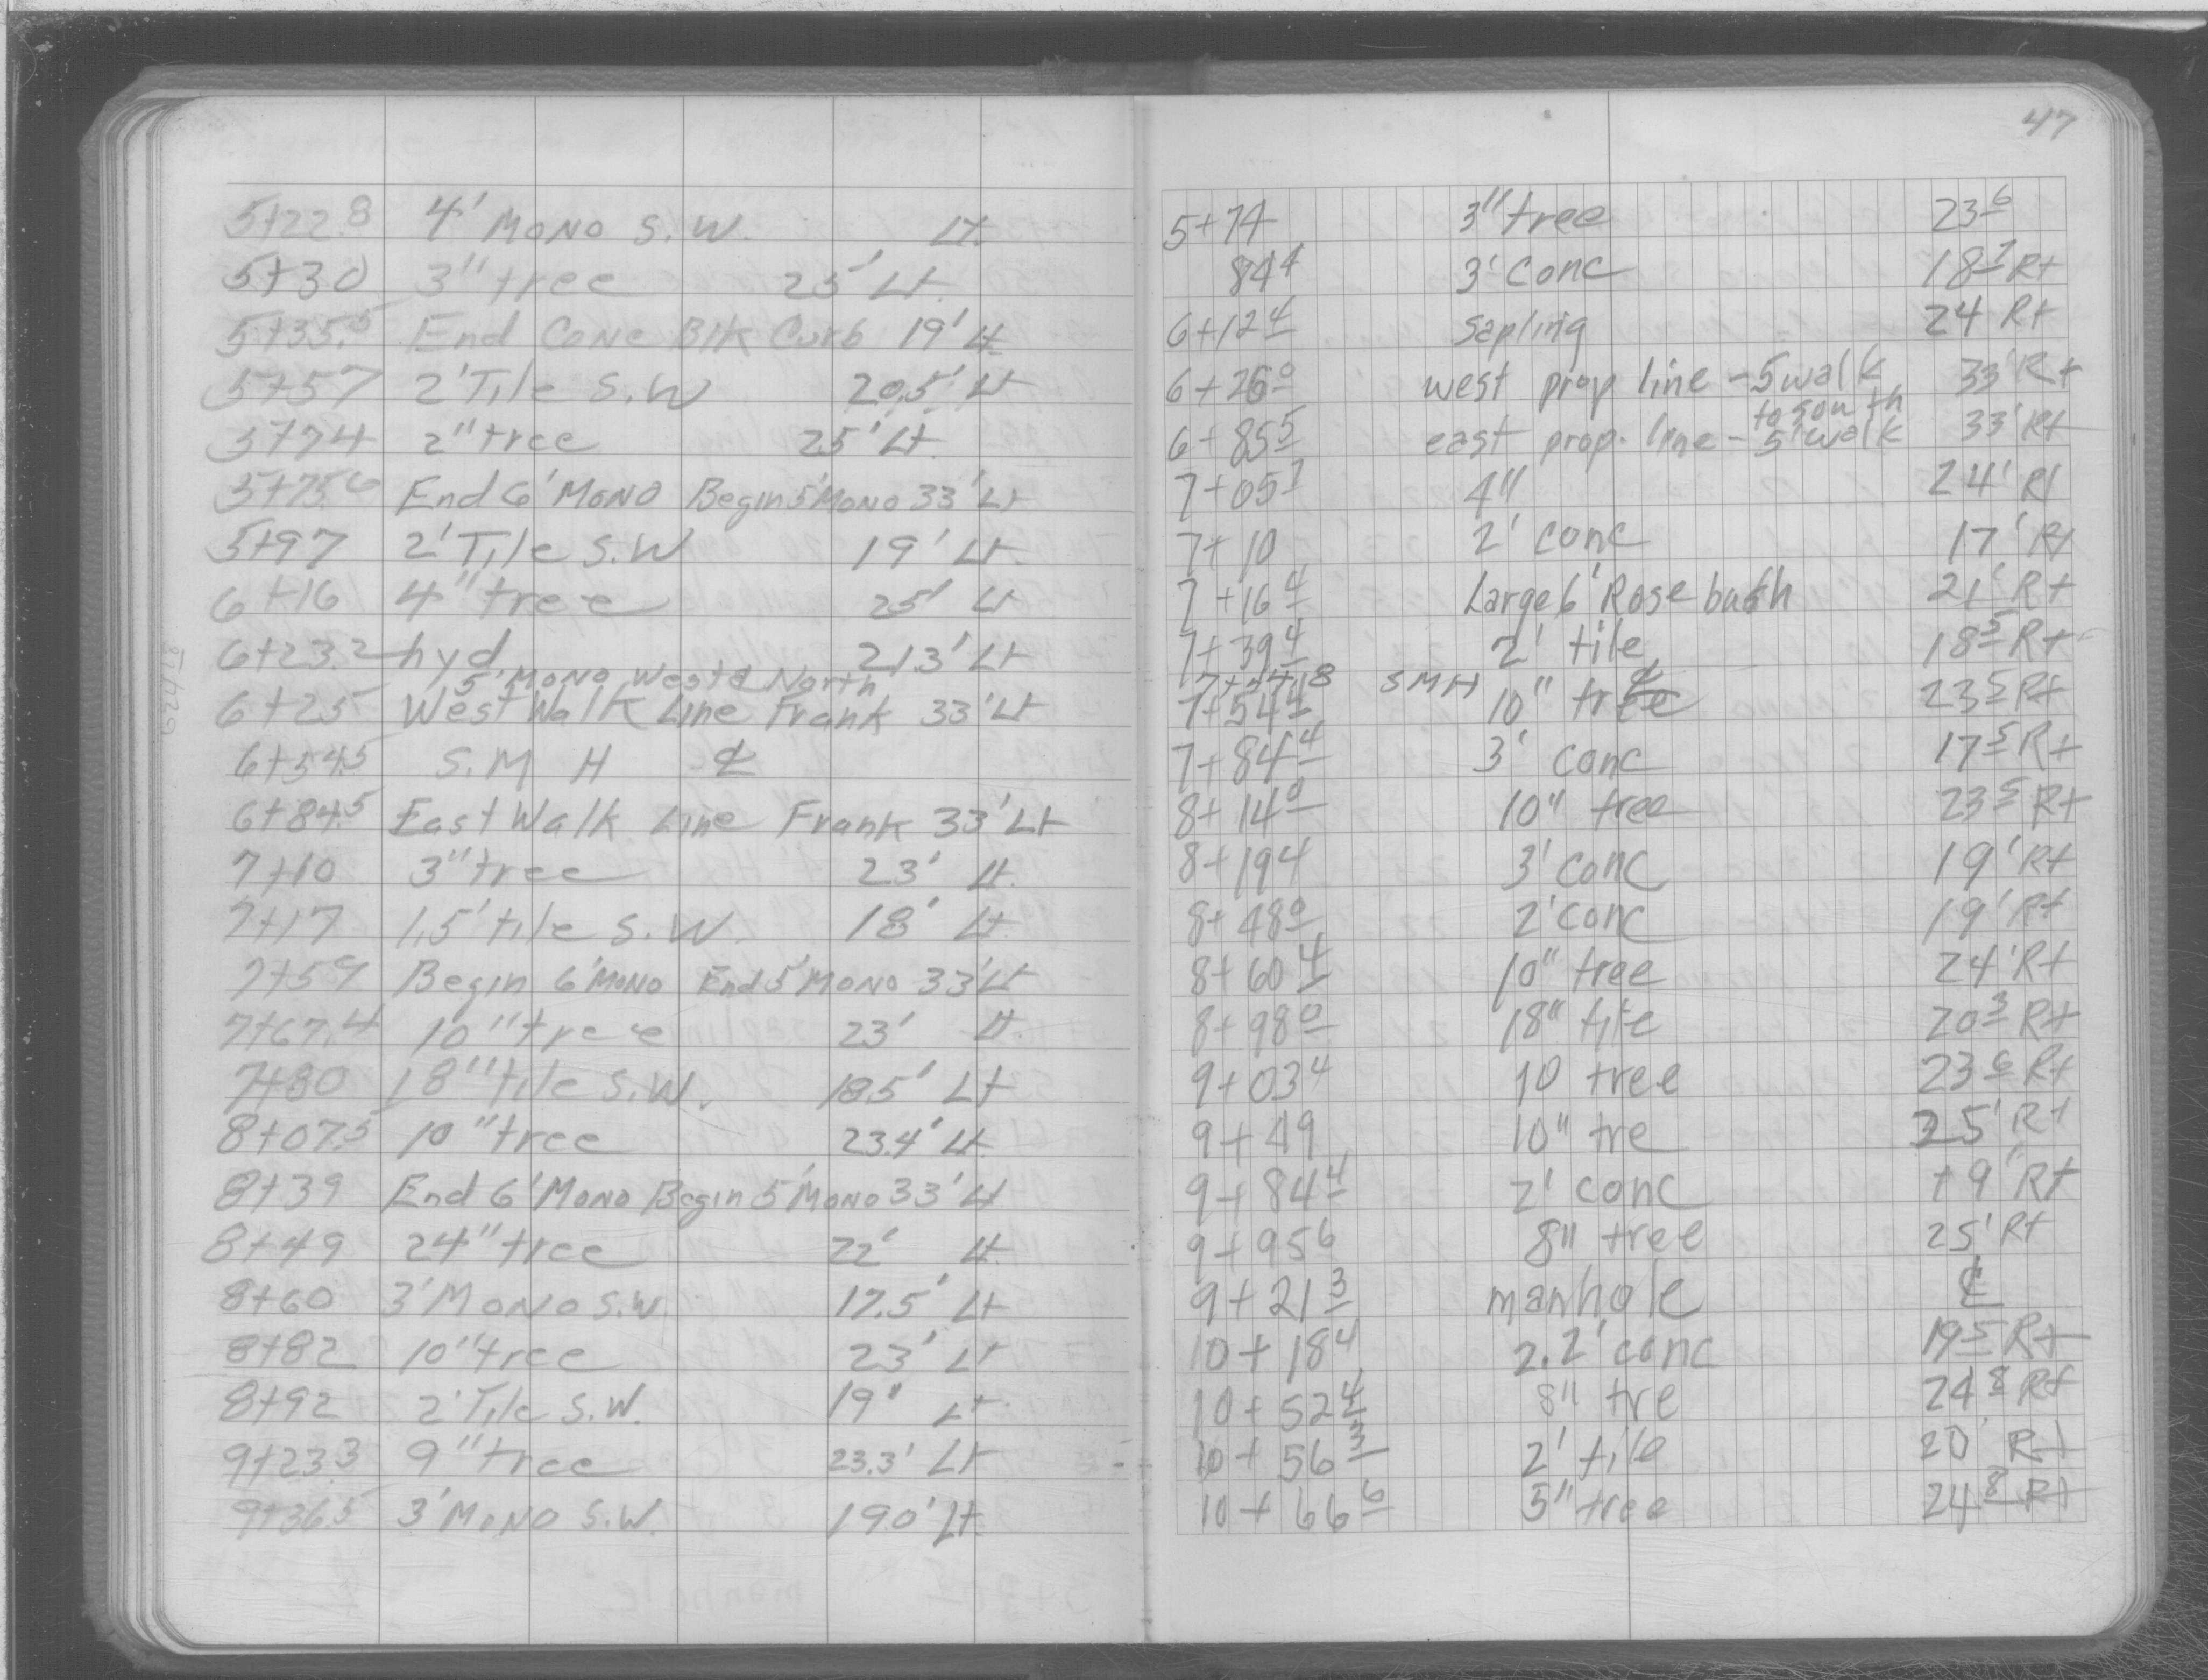 5+22.8 4' MONO S.W. Lt.
5+30 3" tree 25' Lt.
5+35.5 End Conc Blk Curb 19' Lt
5+57 2' Tile S.W 20.5' Lt
5+74 2" tree 25' Lt.
5+75.6 End 6' MONO Begin 5' MONO 33' Lt
5+97 2' Tile S.W 19' Lt.
6+16 4" tree 25' Lt
6+23.2 hyd. 21.3' Lt
5' MONO West & North
6+25 West Walk Line Frank 33' Lt
6+54.5 S.M H ℄
6+84.5 East Walk Line Frank 33' Lt
7+10 3" tree 23' Lt.
7+17 1.5' tile S.W. 18' Lt.
7+59 Begin 6' MONO End 5' MONO 33' Lt
7+67.4 10" tree 23' Lt.
7+80 18" tile S.W. 18.5' Lt
8+07.5 10" tree 23.4' Lt.
8+39 End 6' MONO Begin 5' MONO 33' Lt
8+49 24" tree 22' Lt.
8+60 3' MONO S.W. 17.5' Lt
8+82 10" tree 23' Lt
8+92 2' Tile S.W. 19" Lt.
9+23.3 9" tree 23.3' Lt
9+36.5 3' MONO S.W. 19.0' Lt.
47
5+74 3" tree 23 6
84 4 3' conc 18 7 Rt
6+12 4 sapling 24 Rt
6+26 0 west prop line - 5' walk 33' Rt
to south
6+85 5 east prop. line - 5' walk 33' Rt
7+05 7 4" 24' Rt
7+10 2' conc 17' Rt
7+16 4 Large 6' Rose bush 21' Rt
7+39 4 2' tile 18 5 Rt
7+54.8 SMH ℄
7+54 4 10" tree 23 5 Rt
7+84 4 3' conc 17 5 Rt
8+14 0 10" tree 23 5 Rt
8+19 4 3' conc 19' Rt
8+48 0 2' conc 19' Rt
8+60 4 10" tree 24' Rt
8+98 0 18" tile 20 3 Rt
9+03 4 10 tree 23 6 Rt
9+49 10" tre 25' Rt
9+84 4 2' conc 19' Rt
9+95 6 8" tree 25' Rt
9+21 3 manhole ℄
10+18 4 2.2' conc 19 5 Rt
10+52 4 8" tre 24 8 Rt
10+56 3 2' tile 20' Rt
10+66 6 5" tree 24 8 Rt